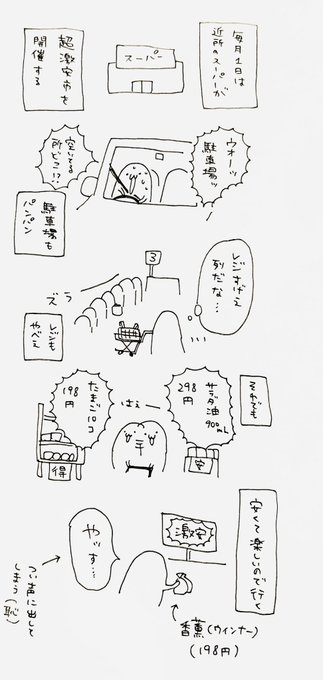 毎月1日は
近所のスーパーが
スーパー
超激安市を
開催する
ウオーッ
駐車場ッ
空いてる
所どこ!?
駐車場も
パンパン
3
レジすげえ
列だな…
ズラ
レジも
やべえ
それでも
サラダ油
900mL
298円
はえー
たまご10コ
198円
安
得
安くて楽しいので行く
激安
やッす…
つい声に出して
しまう(恥)
香薫(ウインナー)
(198円)